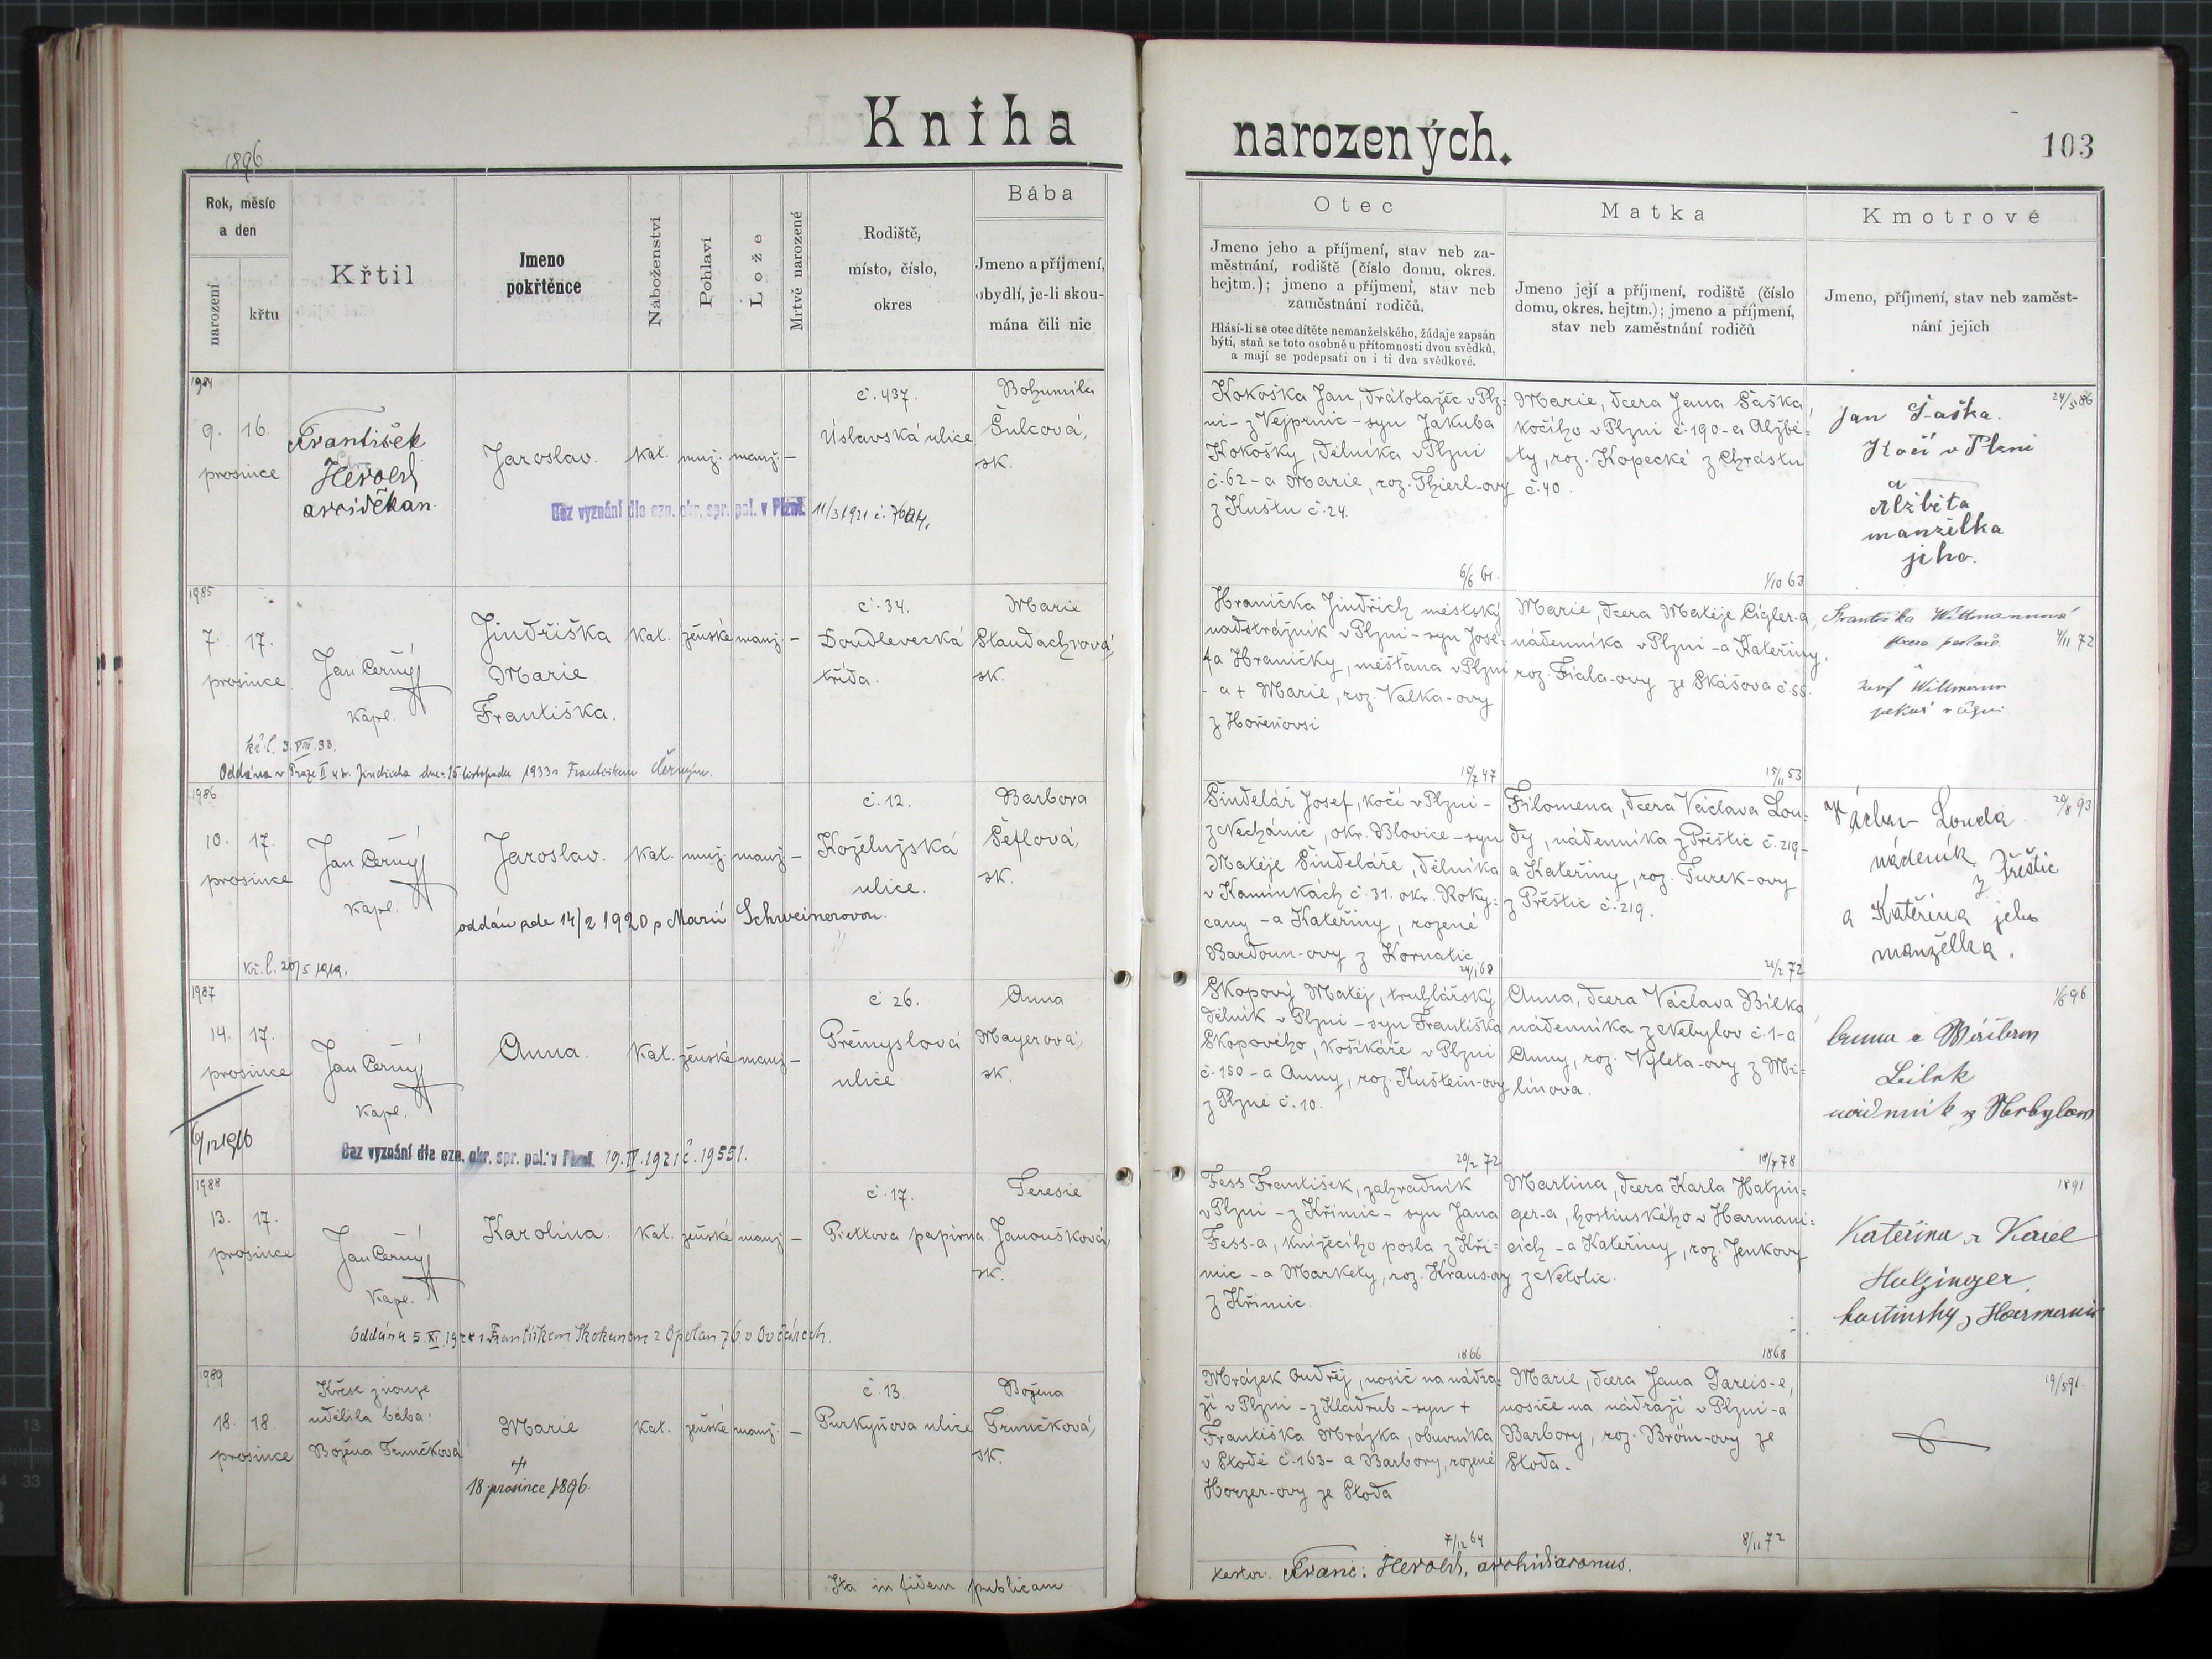 Kniha
narozených.
103
1896
Rok, měsíc
a den
narození
křtu
Křtil
Jmeno
pokřtěnce
Náboženství
Pohlaví
Lože
Mrtvě narozené
Rodiště,
místo, číslo,
okres
Bába
Jmeno a příjmení,
obydlí, je-li skou-
mána čili nic
Otec
Jmeno jeho a příjmení, stav neb za-
městnání, rodiště (číslo domu, okres.
hejtm.); jmeno a příjmení, stav neb
zaměstnání rodičů.
Hlásí-li se otec dítěte nemanželského, žádaje zapsán
býti, staň se toto osobně u přítomnosti dvou svědků,
a mají se podepsati on i ti dva svědkové.
Matka
Jmeno její a příjmení, rodiště (číslo
domu, okres. hejtm.); jmeno a příjmení,
stav neb zaměstnání rodičů
Kmotrové
Jmeno, příjmení, stav neb zaměst-
nání jejich
1984
9. 16.
prosince
František
Herold
arciděkan.
Jaroslav.
kat. muž. manž. –
č. 437.
Úslavská ulice
Bohumila
Šulcová,
sk.
Bez vyznání dle ozn. okr. spr. pol. v Plzni. 11/3 1921 č. 7604.
Kokoška Jan, drátotažěc v Plz-
ni – z Vejprnic – syn Jakuba
Kokošky, dělníka v Plzni
č. 62 – a Marie, roz. Thierl-ovy
z Kuštu č. 24.
6/6 61.
Marie, dcera Jana Šaška,
kočího v Plzni č. 190 – a Alžbě-
ty, roz. Kopecké z Chrástu
č. 40.
1/10 63
24/5 86
Jan Šaška
Kočí v Plzni
a
Alžběta
manželka
jeho.
1985
7. 17.
prosince
Jan Černý
kapl.
Jindřiška
Marie
Františka.
kat. ženské manž. –
č. 34.
Doudlevecká
třída.
Marie
Staudachrová,
sk.
kř. l. 3. VIII. 33.
Oddána v Praze II u sv. Jindřicha dne 15. listopadu 1933 s Františkem Černým.
Hranička Jindřich městský
nadstrážník v Plzni – syn Jose-
fa Hraničky, měšťana v Plzni
– a + Marie, roz. Valka-ovy
z Hořeňovsi
15/7 47
Marie, dcera Matěje Cigler-a,
nádenníka v Plzni – a Kateřiny,
roz. Fiala-ovy ze Skášova č. 55.
15/11 53
Františka Willmannová
4/11 72
Josef Willmann
1986
10. 17.
prosince
Jan Černý
kapl.
Jaroslav.
kat. muž. manž. –
č. 12.
Koželužská
ulice.
Barbora
Šeflová,
sk.
oddán zde 14/2 1920 s Marií Schweinerovou.
kř. l. 20/5 1919.
Šindelář Josef, kočí v Plzni –
z Nechánic, okr. Blovice – syn
Matěje Šindeláře, dělníka
v Kamínkách č. 31. okr. Roky-
cany – a Kateřiny, rozené
Bardoun-ovy z Kornatic
24/1 68
Filomena, dcera Václava Lou-
dy, nádenníka z Přeštic č. 219 –
a Kateřiny, roz. Turek-ovy
z Přeštic č. 219.
21/2 72
20/8 93
Václav Louda
nádeník
z Přeštic
a Kateřina jeho
manželka.
1987
14. 17.
prosince
6/12 1916
Jan Černý
kapl.
Anna.
kat. ženské manž. –
č 26.
Přemyslova
ulice.
Anna
Mayerová,
sk.
Bez vyznání dle ozn. okr. spr. pol. v Plzni. 19. IV. 1921 č. 19551.
Skopový Matěj, truhlářský
dělník v Plzni – syn Františka
Skopového, košíkáře v Plzni
č. 150 – a Anny, roz. Kuštein-ovy
z Plzně č. 10.
20/2 72
Anna, dcera Václava Bílka
nádenníka z Nebylov č. 1 – a
Anny, roz. Výleta-ovy z Mi-
línova.
18/7 78
1/6 96
1988
13. 17.
prosince
Jan Černý
kapl.
Karolina.
kat. ženské manž. –
č. 17.
Piettova papírna
Teresie
Janoušková,
sk.
Oddána 5. XI. 1928 s Františkem Skokanem z Opolan 76. v Ovčárech.
Fess František, zahradník
v Plzni – z Křimic – syn Jana
Fess-a, knížecího posla z Kři-
mic – a Markety, roz. Kraus-ovy
z Křimic.
1866
Martina, dcera Karla Hatzin-
ger-a, hostinského v Harmani-
cích – a Kateřiny, roz. Jenkovy
z Netolic.
1868
1891
Kateřina a Karel
Hatzinger
1989
18. 18.
prosince
Křest z nouze
udělila bába:
Božena Trunčková
Marie
+
18. prosince 1896.
kat. ženské manž. –
č 13.
Purkyňova ulice
Božena
Trunčková,
sk.
Mrázek Ondřej, nosič na nádra-
ží v Plzni – z Kladrub – syn +
Františka Mrázka, obuvníka
v Stodě č. 163 – a Barbory, rozené
Horzer-ovy ze Stoda
7/12 64
Marie, dcera Jana Pareis-e,
nosiče na nádraží v Plzni – a
Barbory, roz. Bröm-ovy ze
Stoda.
8/11 72
19/5 91.
Ita in fidem publicam
testor. Franc. Herold, archidiaconus.